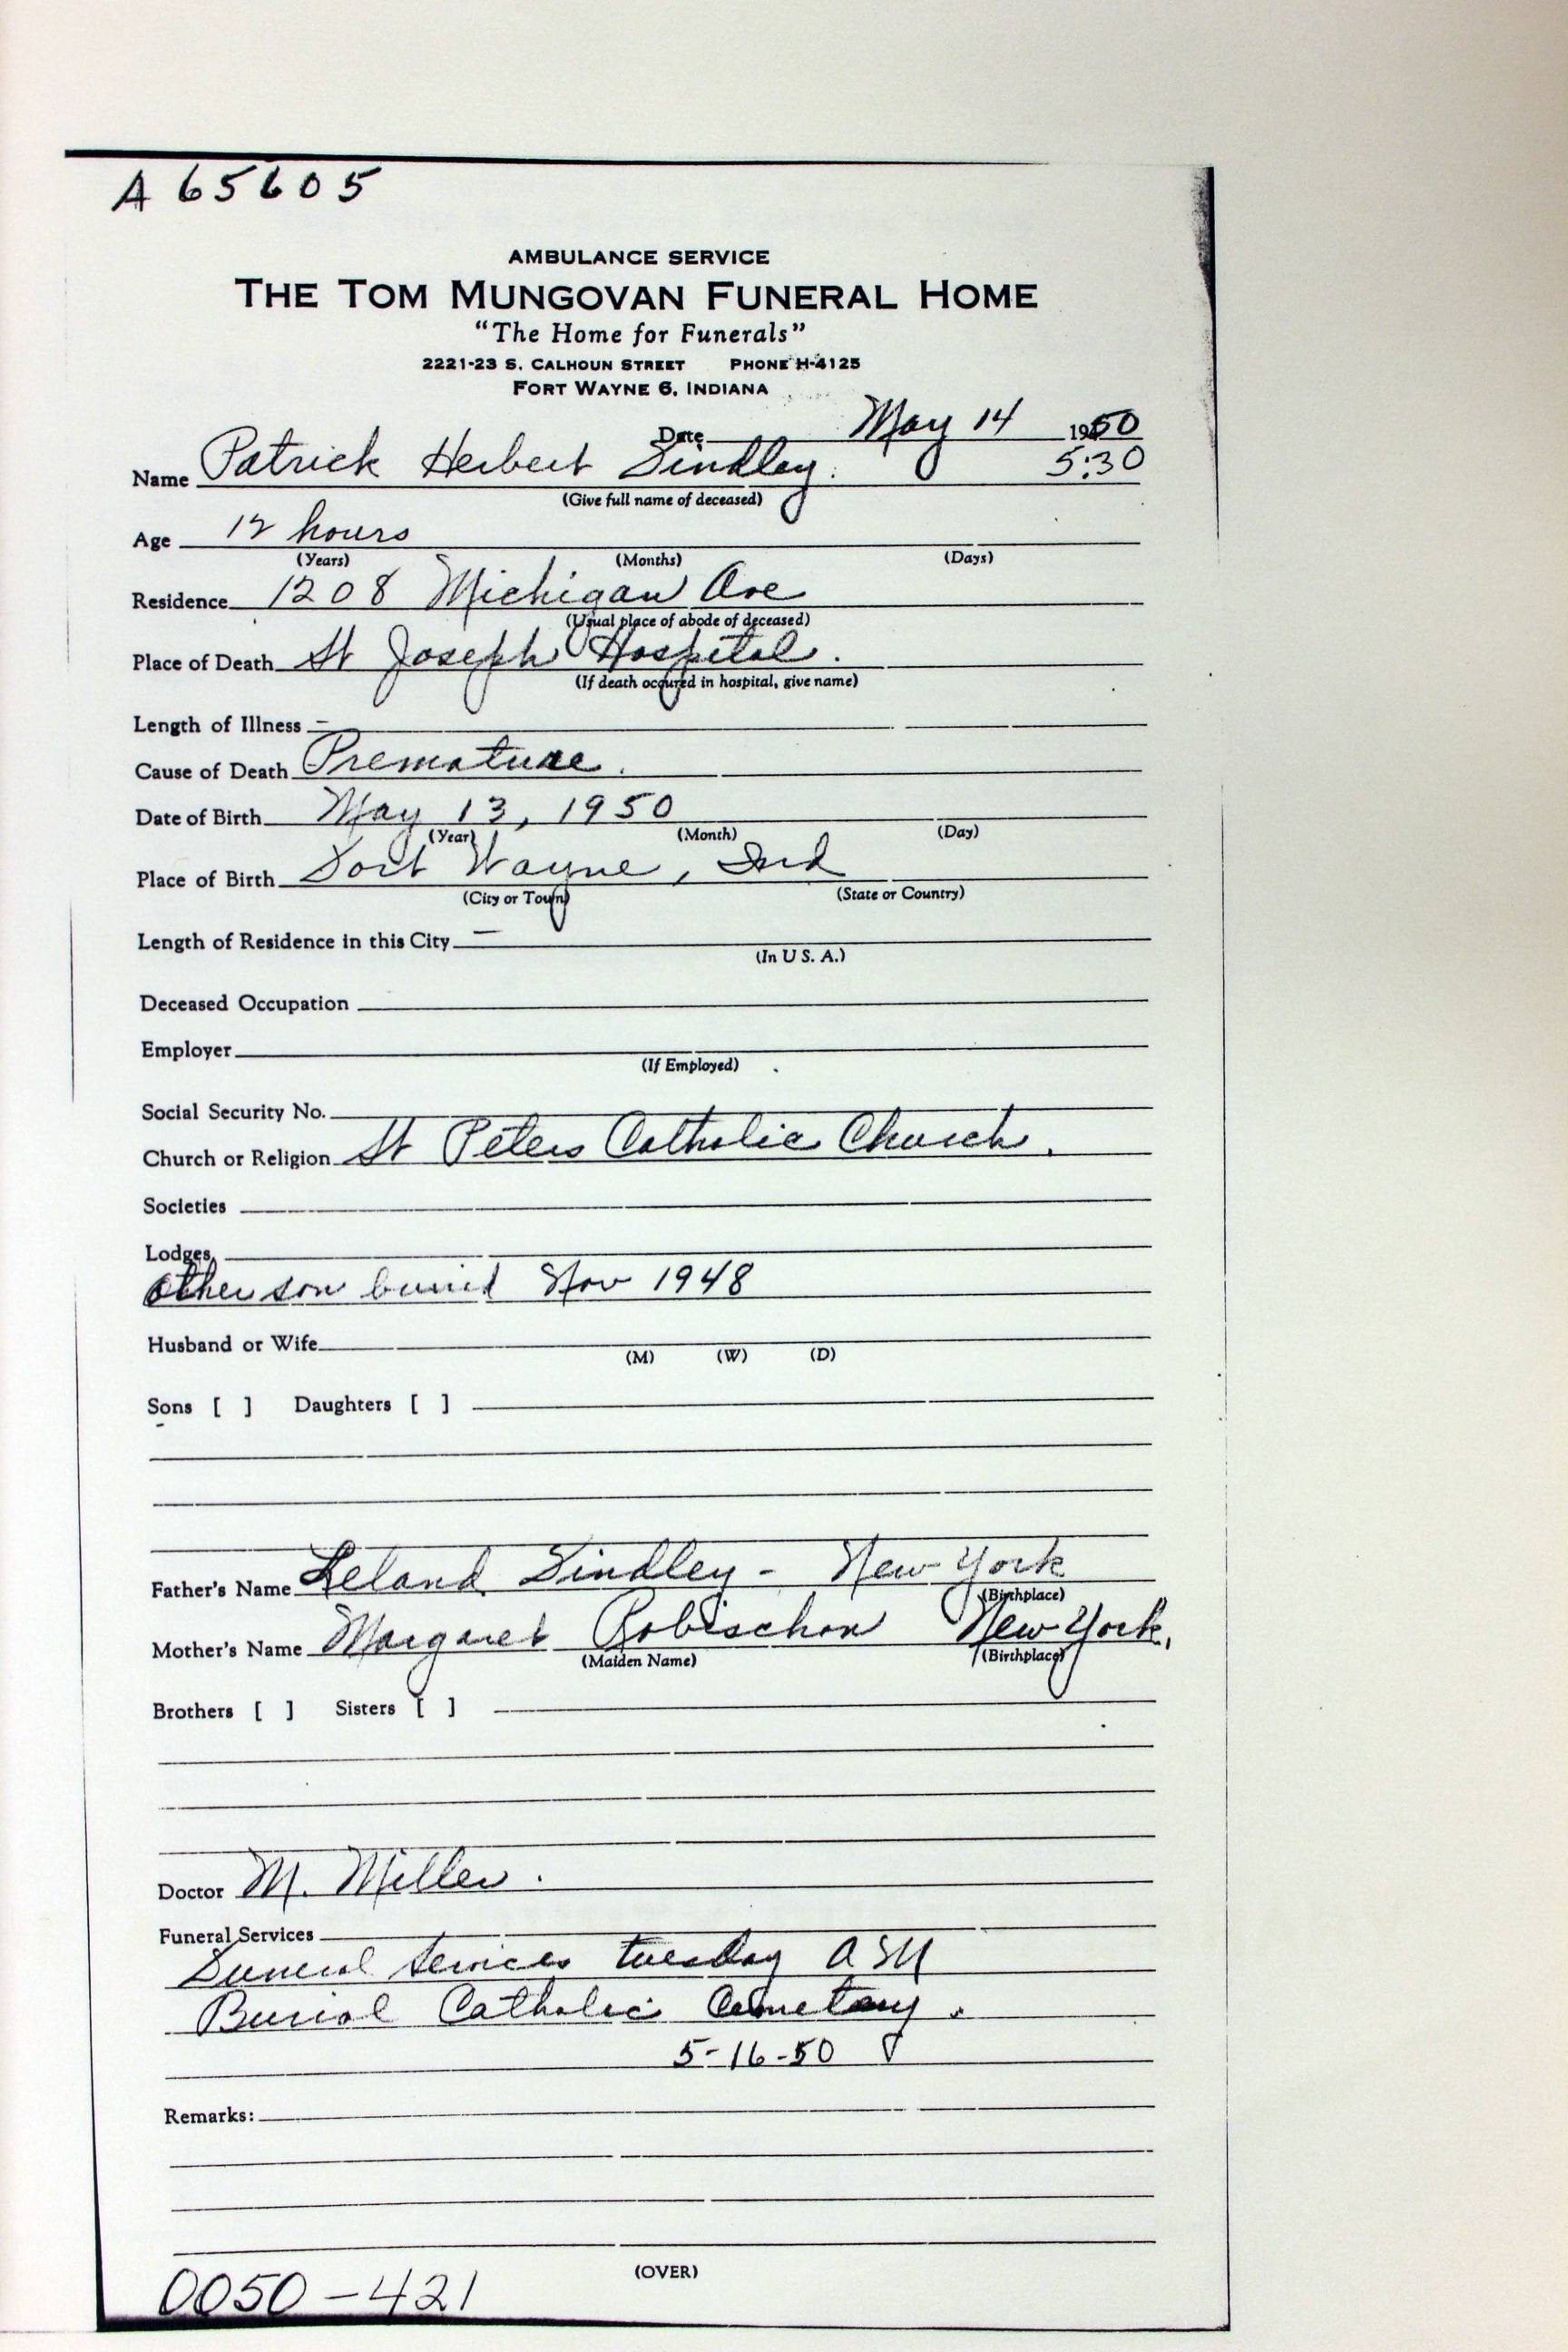 A 65605
AMBULANCE SERVICE
THE TOM MUNGOVAN FUNERAL HOME
"The Home for Funerals"
2221-23 S. CALHOUN STREET PHONE H-4125
FORT WAYNE 6, INDIANA
Date May 14 1950
5:30
Name Patrick Herbert Findley.
(Give full name of deceased)
Age 12 hours
(Years) (Months) (Days)
Residence 1208 Michigan Ave
(Usual place of abode of deceased)
Place of Death St Joseph Hospital.
(If death occured in hospital, give name)
Length of Illness –
Cause of Death Premature.
Date of Birth May 13, 1950
(Year) (Month) (Day)
Place of Birth Fort Wayne, Ind
(City or Town) (State or Country)
Length of Residence in this City –
(In U S. A.)
Deceased Occupation
Employer
(If Employed)
Social Security No.
Church or Religion St Peters Catholic Church.
Societies
Lodges
Other son buried Nov 1948
Husband or Wife
(M) (W) (D)
Sons [ ] Daughters [ ]
Father's Name Leland Findley - New York
(Birthplace)
Mother's Name Margaret Robischon New York,
(Maiden Name) (Birthplace)
Brothers [ ] Sisters [ ]
Doctor M. Miller.
Funeral Services
Funeral Services tuesday
Burial Catholic Cemetary.
5-16-50
Remarks:
(OVER)
0050-421